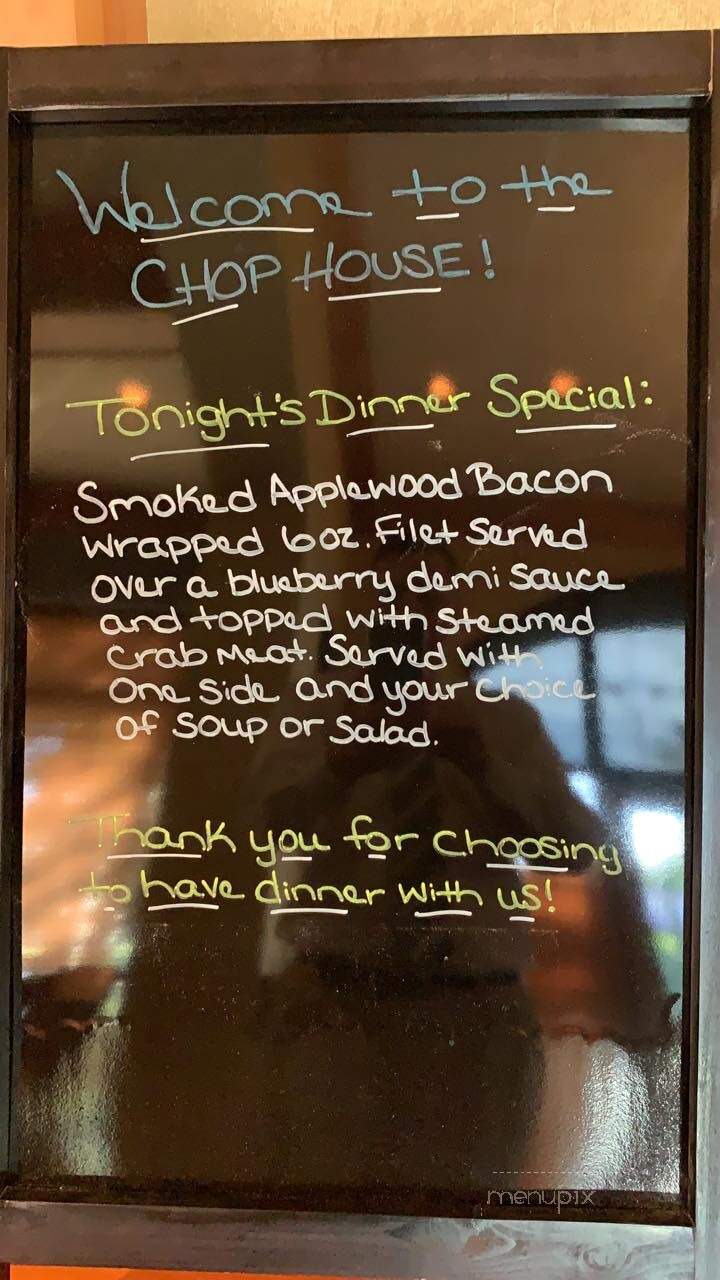 Welcome to the
CHOP HOUSE!
Tonight's Dinner Special:
Smoked Applewood Bacon
wrapped 6oz. Filet Served
over a blueberry demi sauce
and topped with steamed
Crab Meat. Served with
One side and your choice
of soup or salad.
Thank you for choosing
to have dinner with us!
menupix